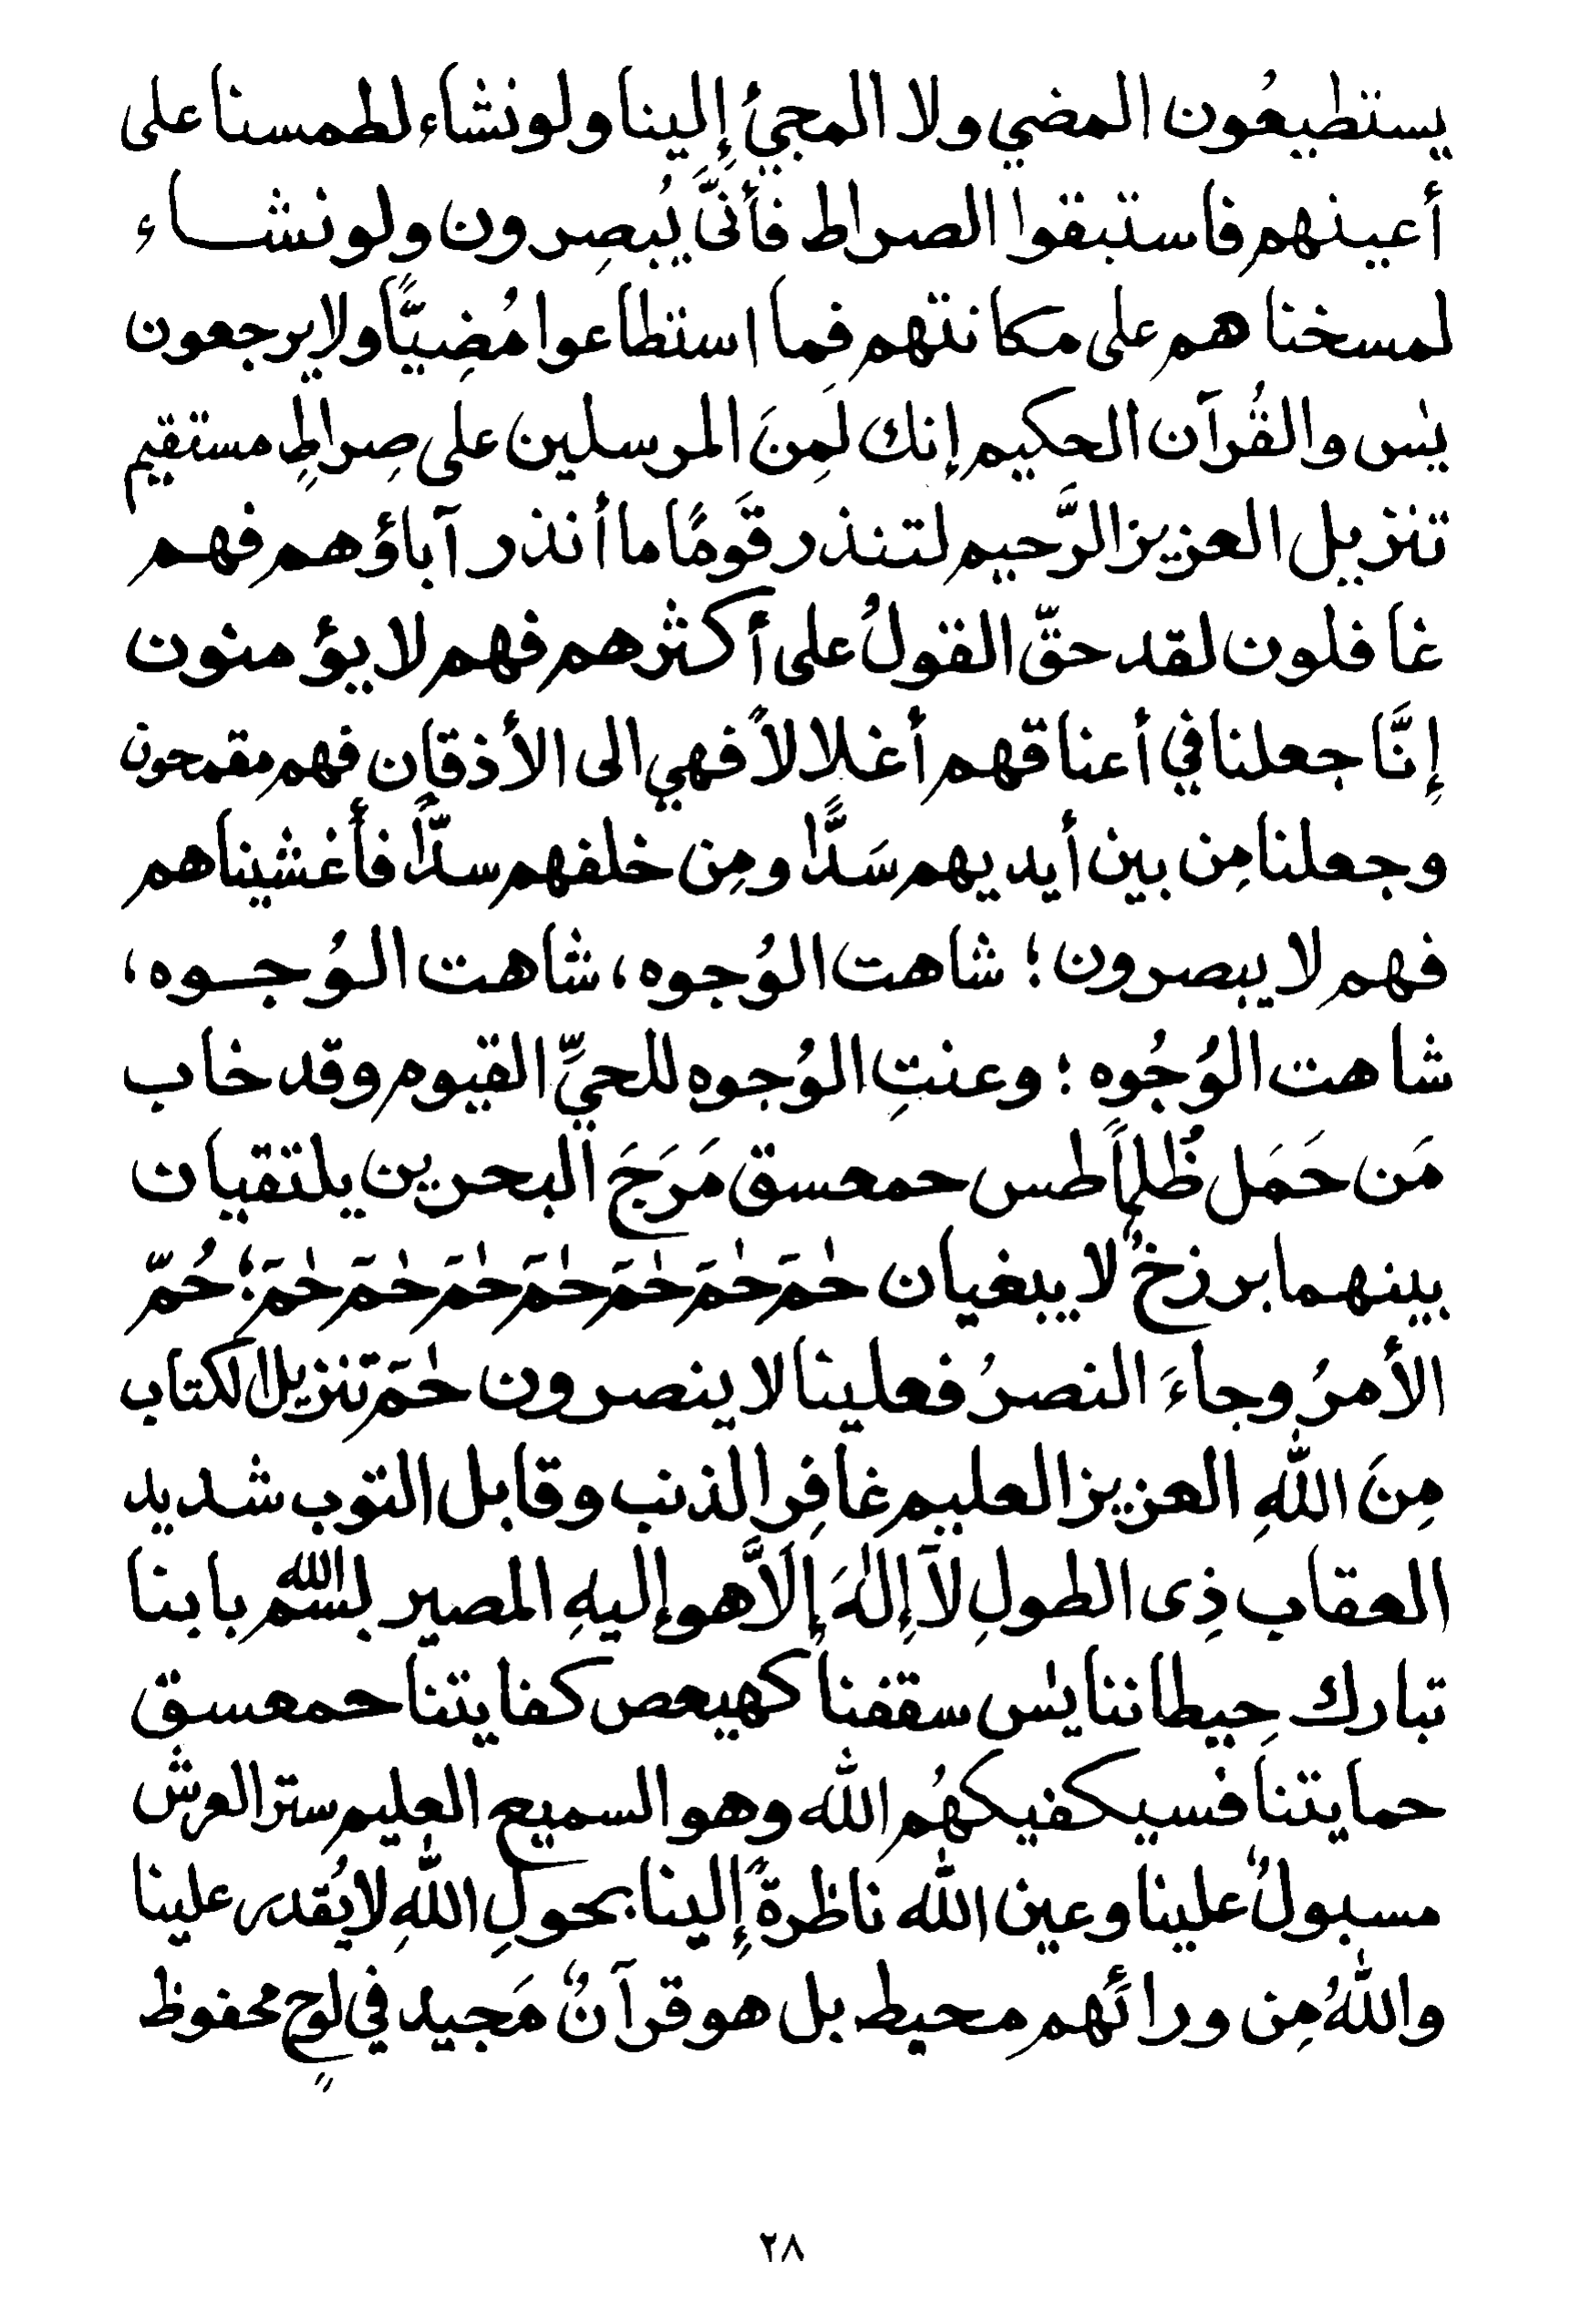 يستطيعُون المضي ولا المجيئ إِلينا ولو نشاء لطمسنا على
أعينهم فاستبقوا الصراط فأَنَّى يُبصِرون ولو نشاء
لمسخناهم على مكانتهم فما استطاعوا مُضِيًّا ولا يرجعون
يٰس والقُرآن الحكيم إنك لَمِنَ المرسلين على صِراطٍ مستقيم
تنزيل العزيز الرَّحيم لتنذر قَومًا ما أنذر آباؤهم فهم
غافلون لقد حقّ القولُ على أكثرهم فهم لا يؤمنون
إِنَّا جعلنا في أعناقهم أغلالاً فهي الى الأذقان فهم مقمحون
وجعلنا مِن بين أيديهم سَدًّا ومِن خلفهم سدًّا فأغشيناهم
فهم لا يبصرون؛ شاهت الوُجوه، شاهت الوُجوه،
شاهت الوُجُوه : وعنتِ الوُجوه للحيِّ القيوم وقد خاب
مَن حَمَل ظُلماً طس حمعسق مَرَجَ البحرين يلتقيان
بينهما برزخٌ لا يبغيان حٰمَ حٰمَ حٰمَ حٰمَ حٰمَ حٰمَ حٰمَ؛ حُمّ
الأمرُ وجاءَ النصرُ فعلينا لا ينصرون حٰمَ تنزيل الكتاب
مِنَ اللهِ العزيز العليم غافِر الذنب وقابل التوب شديد
العقاب ذِى الطولِ لآ إِلٰهَ إِلَّا هو إليهِ المصير بسم الله بابنا
تبارك حِيطاننا يٰس سقفنا كهيعص كفايتنا حمعسق
حمايتنا فسيكفيكهُم الله وهو السميع العليم ستر العرش
مسبولٌ علينا وعين الله ناظرةً إِلينا بحولِ اللهِ لا يُقدر علينا
واللهُ مِن ورائهم محيط بل هو قرآنٌ مَجيد في لوحٍ محفوظ
٢٨